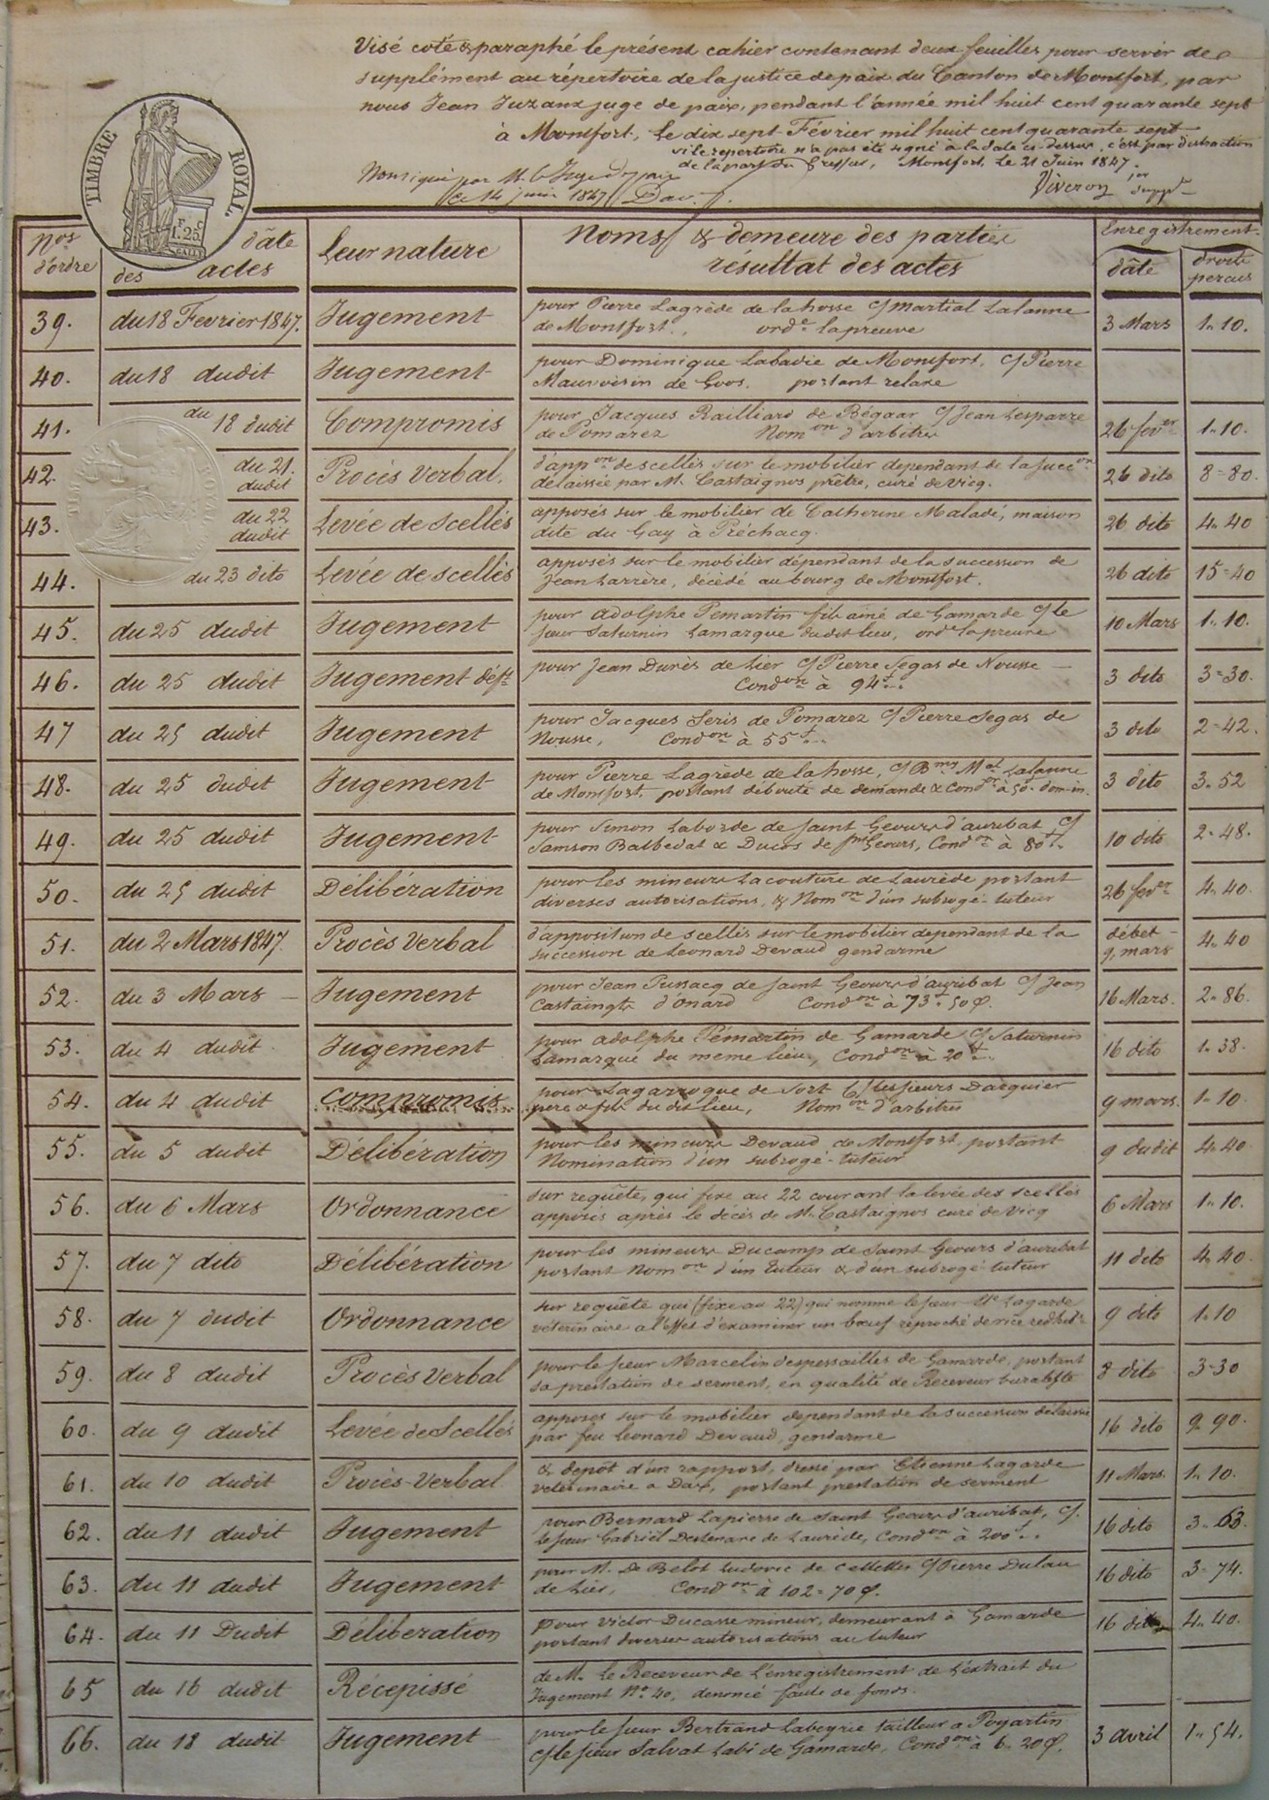 Visé coté & paraphé le présent cahier contenant deux feuilles pour servir de
supplément au répertoire de la justice de paix du Canton de Montfort, par
nous Jean Juzanx juge de paix, pendant l'année mil huit cent quarante sept
à Montfort, le dix sept Février mil huit cent quarante sept
si le repertoire n'a pas été signé à la date ci-dessus, c'est par distraction
de la part du Greffier, Montfort, le 21 Juin 1847.
Non signé par M. le Juge de paix
le 14 juin 1847
TIMBRE ROYAL.
F. C.
1.25
Nos d'ordre
dâte des actes
Leur nature
Noms & demeure des parties
résultat des actes
Enregistrement
dâte
droits percus
39. du 18 Fevrier 1847. Jugement pour Pierre Lagrède de lahosse c/ Martial Lalanne
de Montfort, ord.e la preuve 3 Mars 1 " 10.
40. du 18 dudit Jugement pour Dominique Labadie de Montfort, c/ Pierre
Mauvoisin de Goos, portant relaxe
41. du 18 dudit Compromis pour Jacques Railliard de Bégaar c/ Jean Lesparre
de Pomarez Nom.on d'arbitres 26 fev.er 1 " 10.
42. du 21. dudit Procès Verbal. d'app.on de scellés sur le mobilier dependant de la succ.on
délaissée par M. Castaignos prêtre, curé de Vicq. 26 dito 8 = 80.
43. du 22 dudit Levée de scellés apposés sur le mobilier de Catherine Maladé, maison
dite du Gay à Préchacq. 26 dito 4 " 40
44. du 23 dito Levée de scellés apposés sur le mobilier dépendant de la succession de
Jean Larrère, décédé au bourg de Montfort. 26 dito 15 = 40
45. du 25 dudit Jugement pour adolphe Pemartin fils ainé de Gamarde c/ le
sieur Saturnin Lamarque dudit lieu, ord.e la preuve 10 Mars 1 " 10.
46. du 25 dudit Jugement déf.t pour Jean Durès de Lier c/ Pierre Segas de Nousse
Cond.on à 94 f. 3 dito 3 = 30.
47 du 25 dudit Jugement pour Jacques Seris de Pomarez c/ Pierre Segas de
Nousse, Cond.on à 55 f. 3 dito 2 = 42.
48. du 25 dudit Jugement pour Pierre Lagrède de lahosse, c/ M.al Lalanne
de Montfort, portant deboute de demande & cond.on à 50 f. dom. in. 3 dito 3 " 52
49. du 25 dudit Jugement pour Simon Laborde de Saint Geours d'auribat c/
Samson Balbedat & Ducos de S.nt Geours, Cond.on à 80 f. 10 dito 2 " 48.
50. du 25 dudit Délibération pour les mineurs Lacouture de Laurède portant
diverses autorisations, & Nom.on d'un subrogé-tuteur 26 fev.er 4 " 40.
51. du 2 Mars 1847. Procès Verbal d'apposition de scellés sur le mobilier dependant de la
succession de Leonard Devaud gendarme débet 9 mars 4 " 40
52. du 3 Mars Jugement pour Jean Pussacq de Saint Geours d'auribat c/ Jean
Castaingts d'Onard Cond.on à 73 f. 50 c. 16 Mars. 2 " 86.
53. du 4 dudit Jugement pour adolphe Pémartin de Gamarde c/ Saturnin
Lamarque du meme lieu, Cond.on à 20 f. 16 dito 1 " 38.
54. du 4 dudit Compromis pour Lagarroque de Sort c/ les sieurs Darquier
pere & fils du dit lieu, Nom.on d'arbitres 9 mars. 1 " 10
55. du 5 dudit Délibération pour les mineurs Devaud de Montfort, portant
Nomination d'un subrogé-tuteur 9 dudit 4 " 40
56. du 6 Mars Ordonnance sur requête, qui fixe au 22 courant la levée des scellés
apposés après le décès de M. Castaignos curé de Vicq 6 Mars 1 " 10.
57. du 7 dito Délibération pour les mineurs Ducamp de Saint Geours d'auribat
portant Nom.on d'un tuteur & d'un subrogé tuteur 11 dito 4 " 40.
58. du 7 dudit Ordonnance sur requête qui (fixe au 22) qui nomme le sieur Lagarde
véterinaire a l'effet d'examiner un bœuf reproché de vice redhib.re 9 dito 1 " 10
59. du 8 dudit Procès Verbal pour le sieur Marcelin despessailles de Gamarde, portant
sa prestation de serment, en qualité de Receveur buraliste 8 dito 3 = 30
60. du 9 dudit Levée de Scellés apposés sur le mobilier dependant de la succession délaissée
par feu Leonard Devaud, gendarme 16 dito 9 90.
61. du 10 dudit Procès-Verbal & depôt d'un rapport, dressé par Etienne Lagarde
veterinaire à Dax, portant prestation de serment 11 Mars. 1 " 10.
62. du 11 dudit Jugement pour Bernard Lapierre de Saint Geours d'auribat, c/
le sieur Gabriel Destenave de Laurède, Cond.on à 200 f. 16 dito 3 " 63.
63. du 11 dudit Jugement pour M. De Belot Ludovic de c/ Pierre Dulau
de Lier, Cond.on à 102 = 70 c. 16 dito 3 " 74.
64. du 11 Dudit Délibération pour Victor Ducasse mineur, demeurant à Gamarde
portant diverses autorisations au tuteur 16 dito 4 " 40.
65 du 16 dudit Récépissé de M. le Receveur de l'enregistrement de l'extrait du
Jugement No. 40, denoncé faute de fonds.
66. du 18 dudit Jugement pour le sieur Bertrand Labeyrie tailleur a Poyartin
c/ le sieur Salvat Labi de Gamarde, Cond.on à 6 " 20 c. 3 avril 1 " 54.